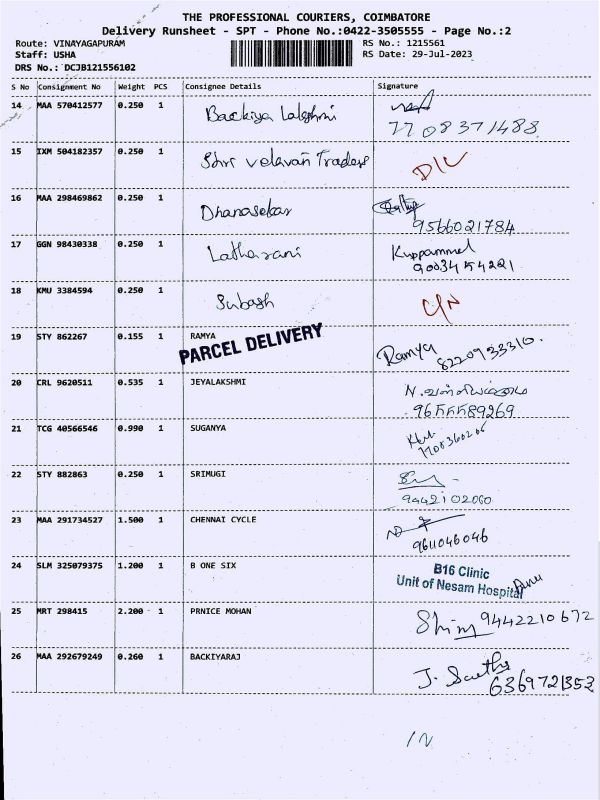 THE PROFESSIONAL COURIERS, COIMBATORE
Delivery Runsheet - SPT - Phone No.:0422-3505555 - Page No.:2
Route: VINAYAGAPURAM RS No.: 1215561
Staff: USHA RS Date: 29-Jul-2023
DRS No.: DCJB121556102
S No Consignment No Weight PCS Consignee Details Signature
14 MAA 570412577 0.250 1 Backiya Lakshmi
7708371488
15 IXM 504182357 0.250 1 Shri velavan Traders D/L
16 MAA 298469862 0.250 1 Dhanasekar
9566021784
17 GGN 98430338 0.250 1 Latharani Kuppammal
9003454221
18 KMU 3384594 0.250 1 Subash
19 STY 862267 0.155 1 RAMYA Ramya
PARCEL DELIVERY 8220933310
20 CRL 9620511 0.535 1 JEYALAKSHMI
9655589269
21 TCG 40566546 0.990 1 SUGANYA
22 STY 882863 0.250 1 SRIMUGI
9442102060
23 MAA 291734527 1.500 1 CHENNAI CYCLE
9611046046
24 SLM 325079375 1.200 1 B ONE SIX B16 Clinic
Unit of Nesam Hospital
25 MRT 298415 2.200 1 PRNICE MOHAN 9442210672
26 MAA 292679249 0.260 1 BACKIYARAJ
6369721353